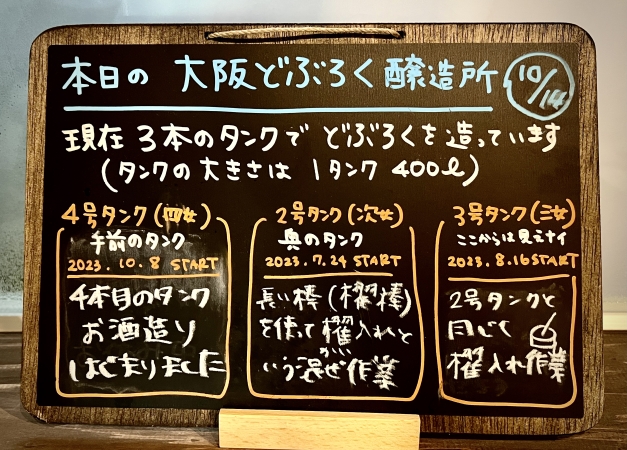 本日の 大阪どぶろく醸造所
10/14
現在 3本のタンクで どぶろくを造っています
(タンクの大きさは 1タンク 400ℓ)
4号タンク(四女)
手前のタンク
2023.10.8 START
4本目のタンク
お酒造り
はじまりました
2号タンク(次女)
奥のタンク
2023.7.24 START
長い棒(櫂棒)
を使って 櫂入れと
いう混ぜ作業
3号タンク(三女)
ここからは見えナイ
2023.8.16 START
2号タンクと
同じく
櫂入れ作業